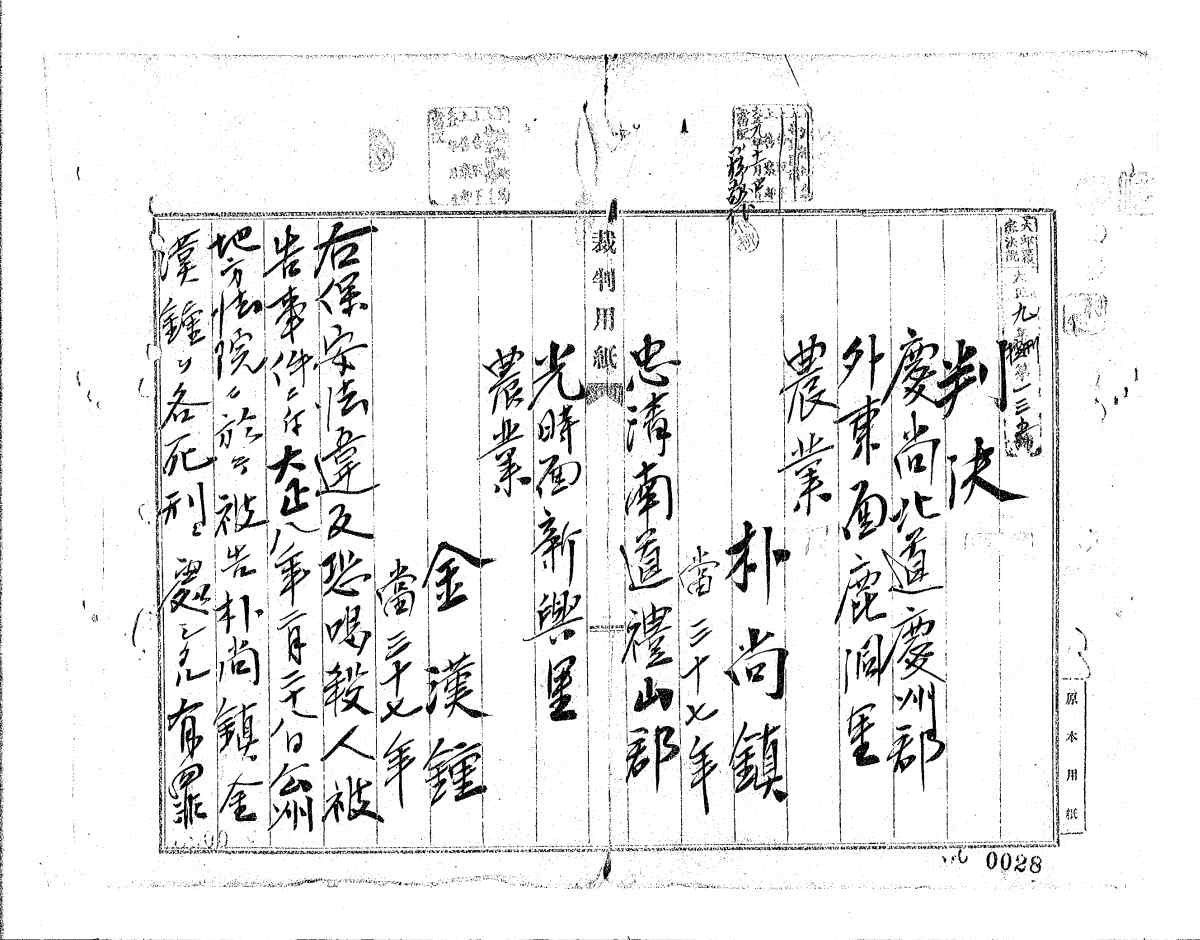 大正九年刑第一三五
判決
慶尚北道慶州郡
外東面鹿洞里
農業
朴尚鎮
當三十七年
忠清南道禮山郡
光時面新興里
農業
金漢鍾
當三十七年
右保安法違反恐喝殺人被
告事件ニ付大正八年二月二十八日公州
地方法院ニ於テ被告朴尚鎮、金
漢鍾ヲ各死刑ニ處シタル有罪
裁判用紙
原本用紙
0028